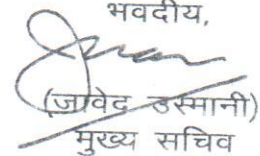 भवदीय,
(जावेद उस्मानी)
मुख्य सचिव